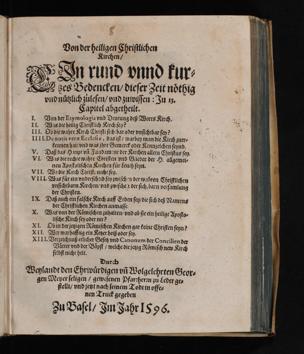 Von der heiligen Christlichen
Kirchen/
Ein rund vnnd kur-
tzes Bedencken/ dieser Zeit nöthig
vnd nützlich zulesen/ vnd zuwissen: In 13.
Capitel abgetheilt.
I. Von der Etymologia vnd Deutung deß Worts Kirch.
II. Was die heilig Christlich Kirch sey?
III. Ob die wahre Kirch Christi sichtbar oder vnsichtbar sey?
IIII. De notis verae Ecclesiae, das ist/ warbey man die Kirch zuer-
kennen hab: vnd was ihre
V. Daß das Haupt vñ Fundament der Kirchen allein Christus sey.
VI. Was die rechte wahre Christen vnd Glieder der H. allgemei-
nen Apostolischen Kirchen für Leuth seyn.
VII. Wo die Kirch Christi nicht sey.
VIII. Was für ein vnderscheid sey zwischen der wahren Christlichen
vnd zwischen der
der Christen.
IX. Daß auch ein falsche Kirch auff Erden sey/ die sich deß Namens
der Christlichen Kirchen anmasse.
X. Was von der Römischen zuhalten: vnd ob sie ein heilige Aposto-
lische Kirch sey oder nit?
XI. Ob in der jetzigen Römischen Kirchen gar keine Christen seyn?
XII. Wer warhafftig ein Ketzer
XIII. Verzeichnuß etlicher Gesetz vnd Canonum der Concilien der
Vätter vnd der Bäpst/ welche die jetzig Römisch new Kirch
selbst nicht helt.
Durch
Weylandt den Ehrwürdigen vñ Wolgelehrten Geor-
gen Meyer seligen/ gewesenen Pfarrherrn zu
stellt/ vnd jetzt nach seinem Todt in offe-
nen Truck gegeben
Zu Basel/ Im Jahr 1596.